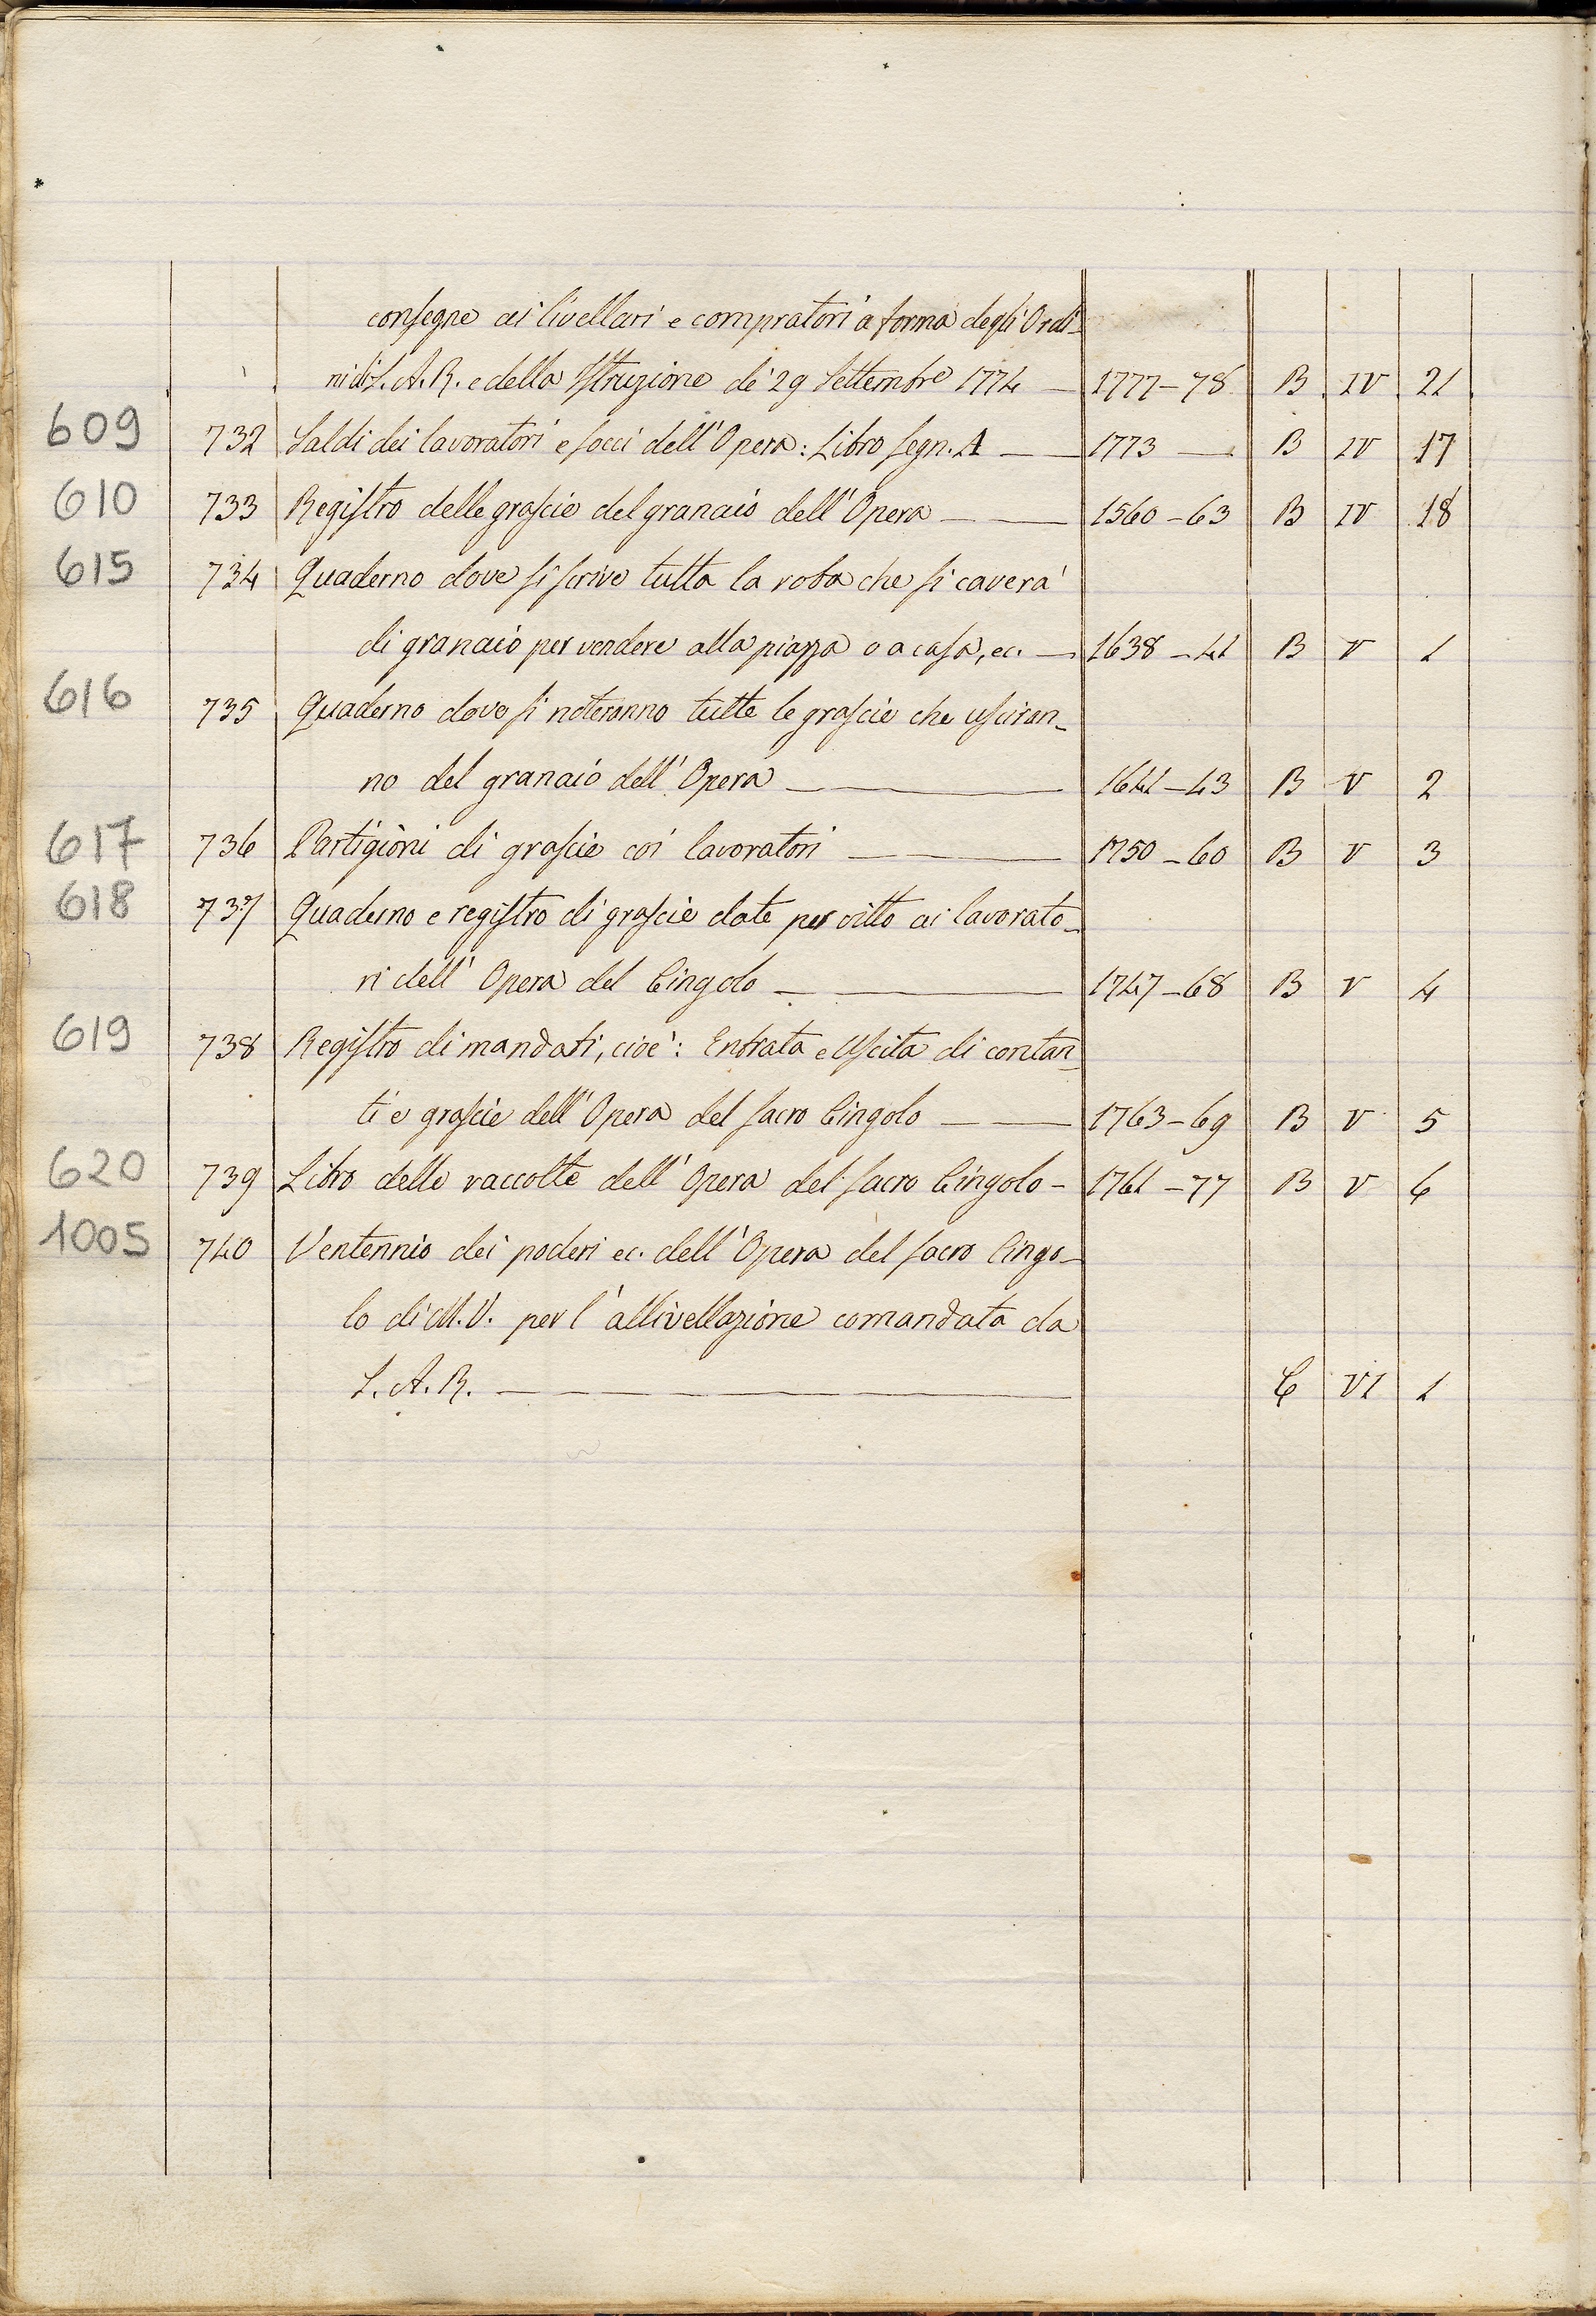 consegne ai livellari e compratori a forma degli Ordi-
ni di S. A. R. e della Istruzione de' 29 Settembre 1774 — 1777-78 B IV 21
609 732 Saldi dei lavoratori e socci dell'Opera: Libro segn. A — 1773 — B IV 17
610 733 Registro delle grascie del granaio dell'Opera — 1560-63 B IV 18
615 734 Quaderno dove si scrive tutta la roba che si caverà
di granaio per vendere alla piazza o a casa, ec. — 1638-41 B V 1
616 735 Quaderno dove si noteranno tutte le grascie che usciran-
no del granaio dell'Opera — 1641-43 B V 2
617 736 Partigioni di grascie coi lavoratori — 1750-60 B V 3
618 737 Quaderno e registro di grascie date per vitto ai lavorato-
ri dell'Opera del Cingolo — 1747-68 B V 4
619 738 Registro di mandati, cioè: Entrata e Uscita di contan-
ti e grascie dell'Opera del sacro Cingolo — 1763-69 B V 5
620 739 Libro delle raccolte dell'Opera del sacro Cingolo - 1761-77 B V 6
1005 740 Ventennio dei poderi ec. dell'Opera del sacro Cingo-
lo di M. V. per l'allivellazione comandata da
S. A. R. — C VI 1